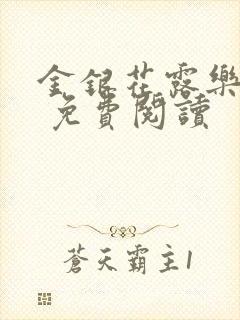 金銀花露樂
免費閱讀
蒼天霸主1